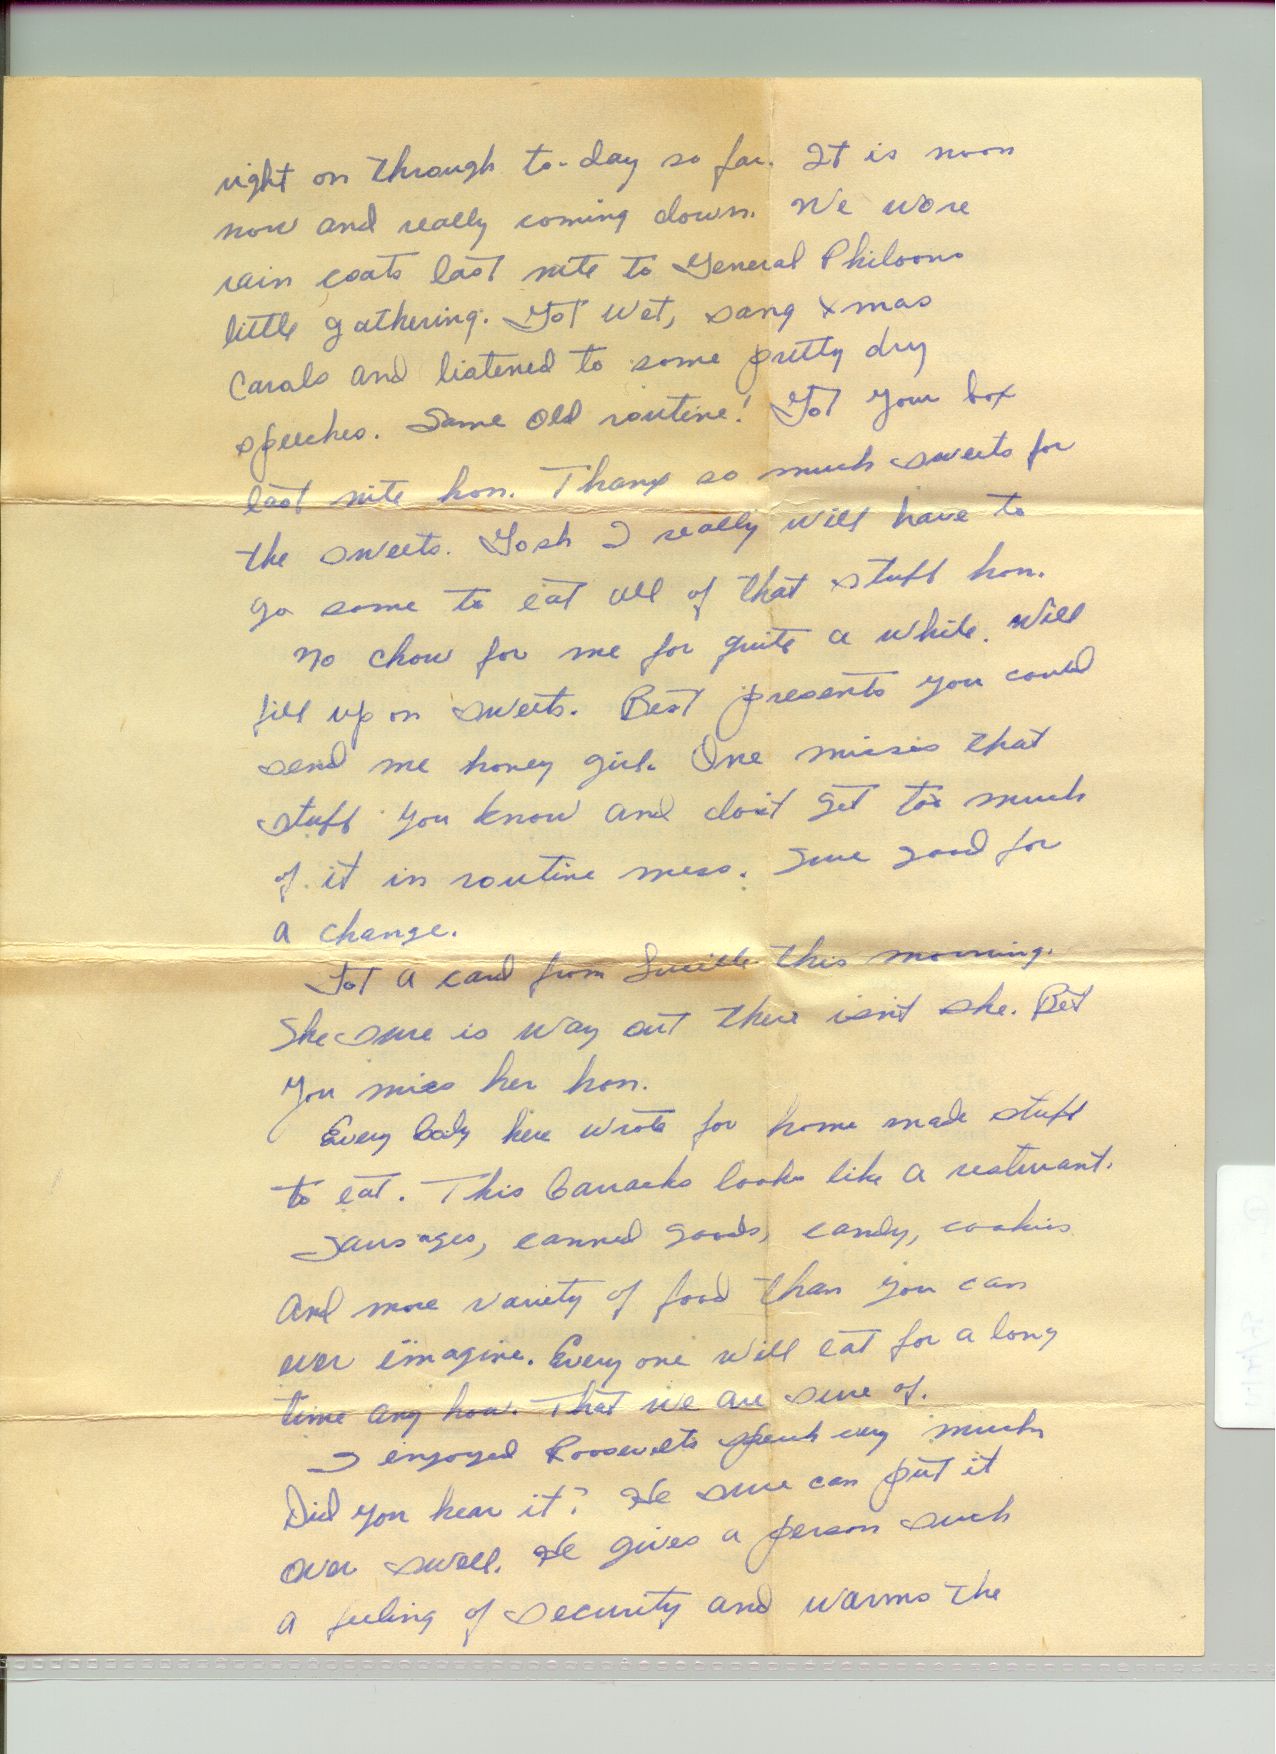 right on through to-day so far. It is noon
now and really coming down. We wore
rain coats last nite to General Philoons
little gathering. Got wet, sang xmas
Carols and listened to some pretty dry
speeches. Same old routine! Got your box
last nite hon. Thanx so much sweets for
the sweets. Gosh I really will have to
go some to eat all of that stuff hon.
No chow for me for quite a while. Will
fill up on sweets. Best presents you could
send me honey girl. One misses that
stuff you know and don't get too much
of it in routine mess. Sure good for
a change.
Got a card from Lucille this morning.
She sure is way out there isn't she. Bet
you miss her hon.
Every body here wrote for home made stuff
to eat. This barracks looks like a resturant.
Sausages, canned goods, candy, cookies
and more variety of food than you can
ever imagine. Every one will eat for a long
time any how. That we are sure of.
I enjoyed Roosevelts speech very much
Did you hear it? He sure can put it
over swell. He gives a person such
a feeling of security and warms the